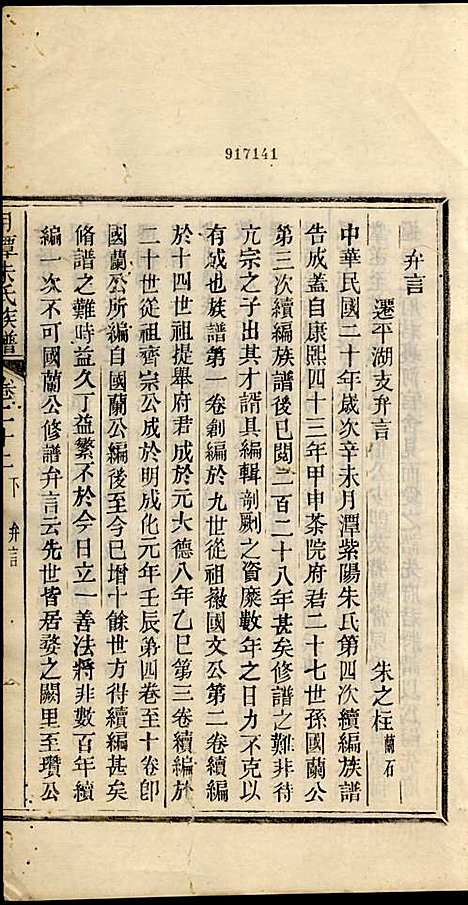 917141
弁言
遷平湖支弁言
朱之柱蘭石
中華民國二十年歲次辛未月潭紫陽朱氏第四次續編族譜
告成蓋自康熙四十三年甲申茶院府君二十七世孫國蘭公
第三次續編族譜後已閱二百二十八年甚矣修譜之難非待
亢宗之子出其才諝具編輯剞劂之資糜數年之日力不克以
有成也族譜第一卷創編於九世從祖徽國文公第二卷續編
於十四世祖提舉府君成於元大德八年乙巳第三卷續編於
二十世從祖齊宗公成於明成化元年壬辰第四卷至十卷卽
國蘭公所編自國蘭公編後至今已增十餘世方得續編甚矣
脩譜之難時益久丁益繁不於今日立一善法將非數百年續
編一次不可國蘭公修譜弁言云先世皆居婺之闕里至瓚公
月潭朱氏族譜
卷二十二下
弁言